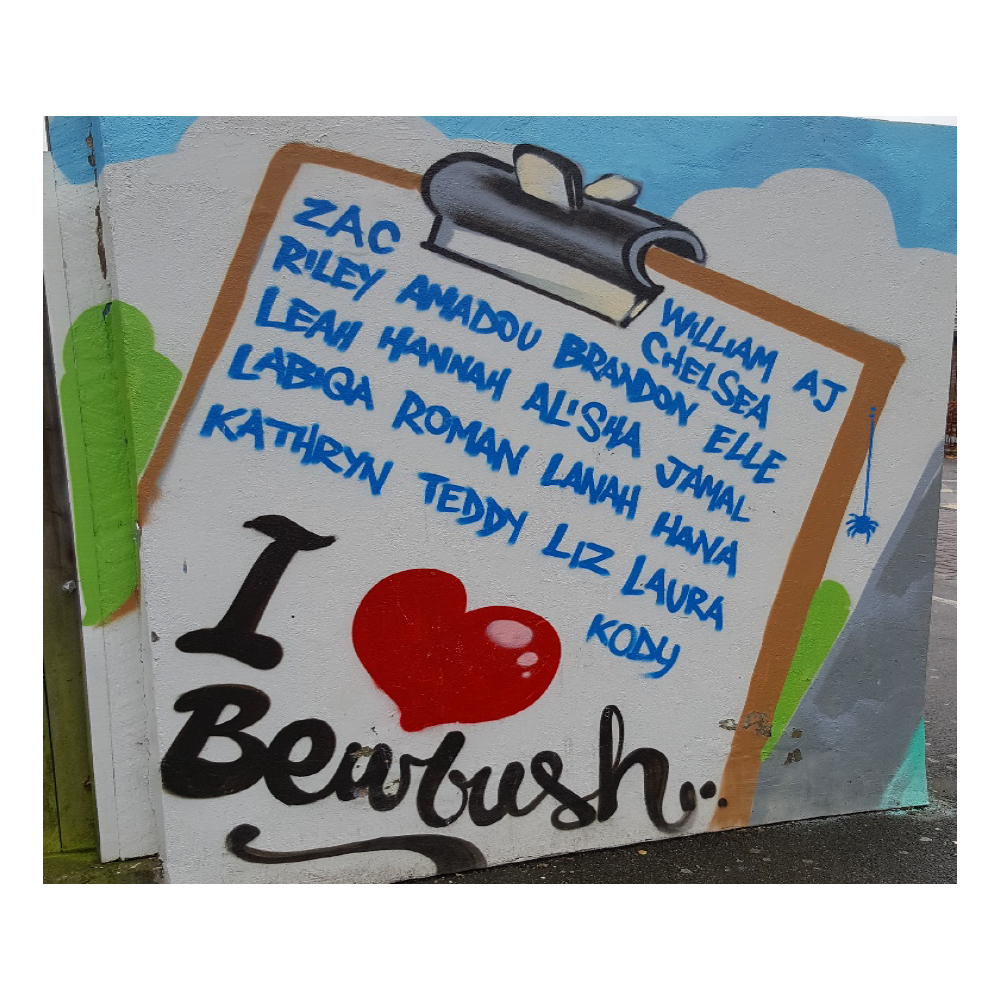 ZAC WILLIAM AJ
RILEY AMADOU BRANDON CHELSEA
LEAH HANNAH ALISHA ELLE
LABIQA ROMAN LANAH JAMAL
KATHRYN TEDDY LIZ HANA
LAURA
KODY
I
Bewbush...